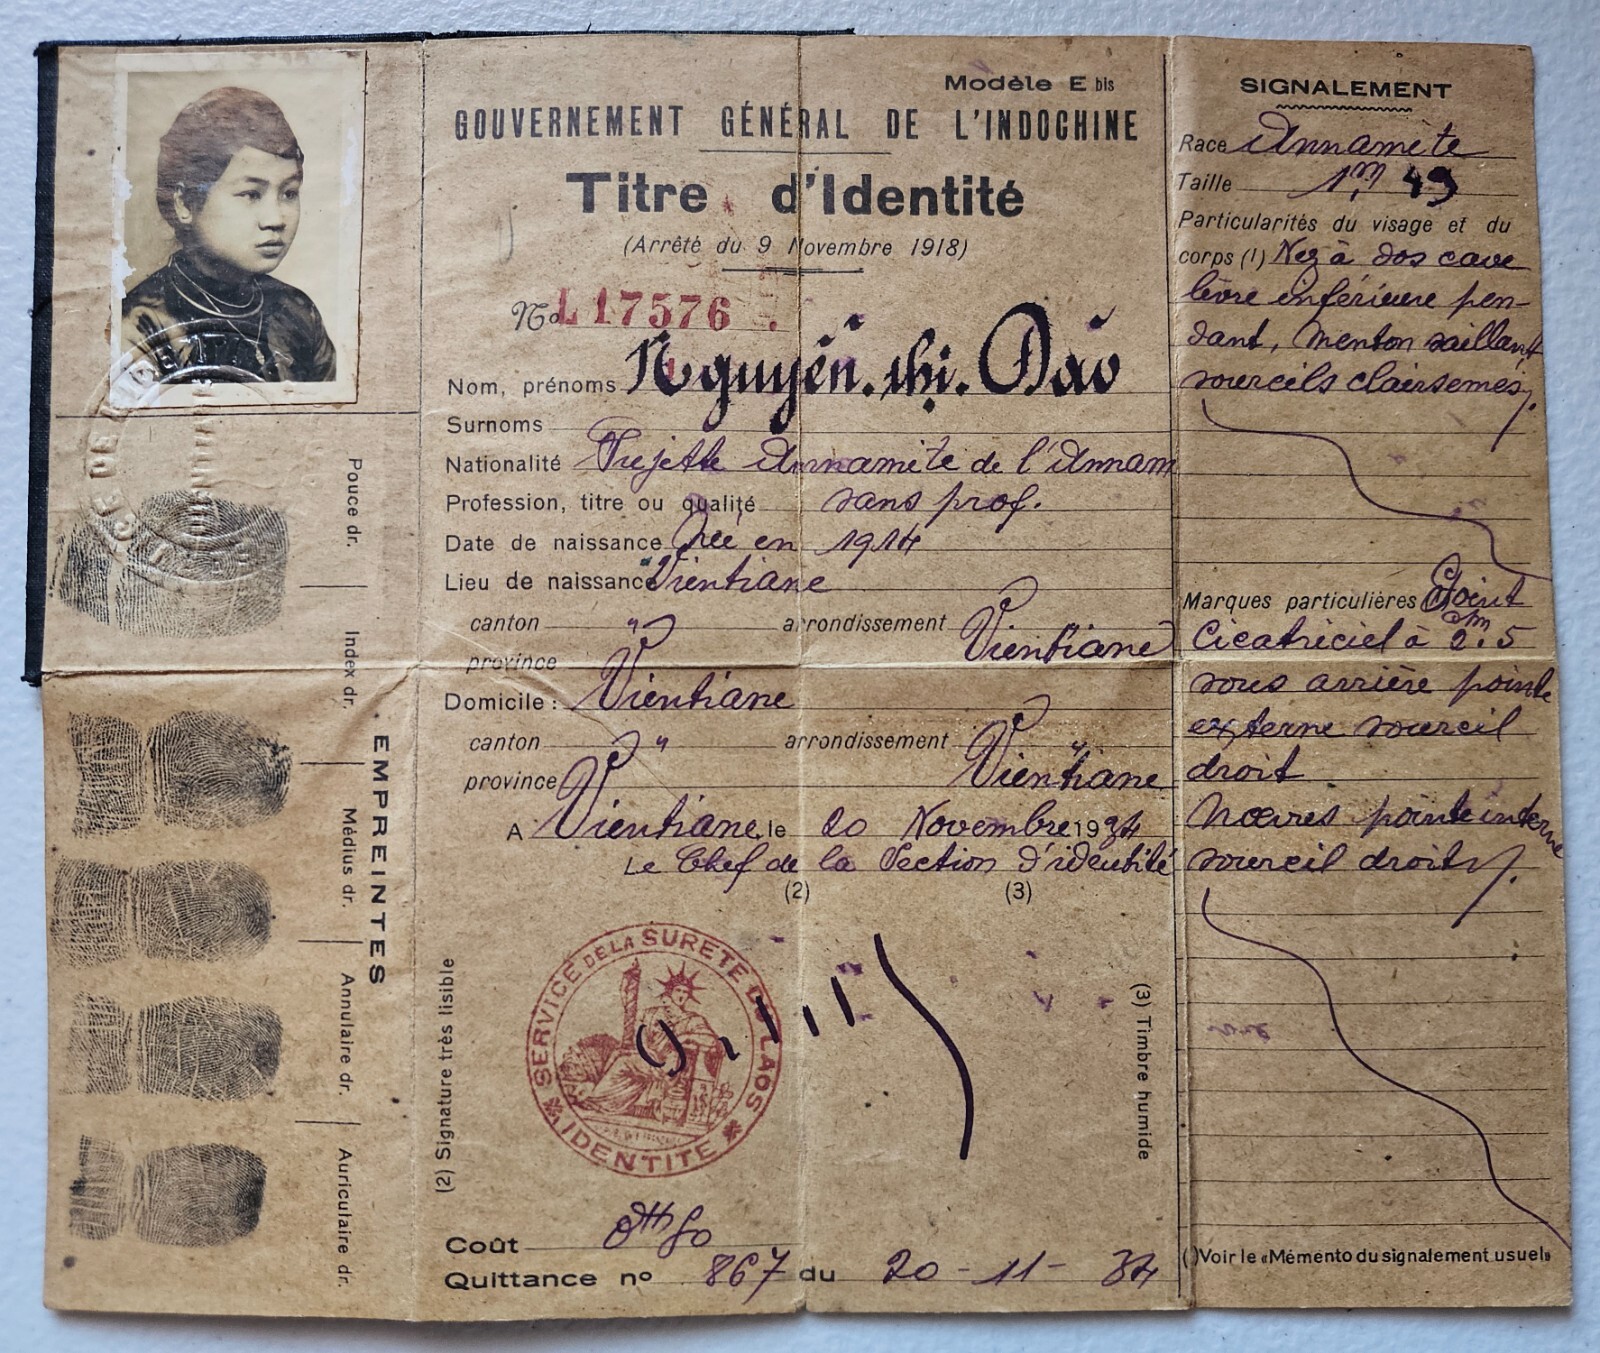 Modèle E bis
GOUVERNEMENT GÉNÉRAL DE L'INDOCHINE
Titre d'Identité
(Arrêté du 9 Novembre 1918)
No L 17576
Nom, prénoms Nguyễn. thị. Đào
Surnoms
Nationalité Sujette Annamite de l'Annam
Profession, titre ou qualité sans prof.
Date de naissance Née en 1914
Lieu de naissance Vientiane
canton " arrondissement
province Vientiane Vientiane
Domicile : Vientiane
canton " arrondissement "
province Vientiane Vientiane
A Vientiane, le 20 Novembre 1934
Le Chef de la Section d'identité
(2) (3)
(2) Signature très lisible
(3) Timbre humide
SERVICE DE LA SURETE DU LAOS
IDENTITE
Coût
Quittance no 867 du 20 - 11 - 34
SIGNALEMENT
Race Annamite
Taille 1m 49
Particularités du visage et du
corps (1) Nez à dos cave
lèvre inférieure pen-
dant, menton saillant
sourcils clairsemés
Marques particulières Point
Cicatriciel à 2cm.5
sous arrière pointe
externe sourcil
droit
Nœvres pointe interne
sourcil droit
( )Voir le «Mémento du signalement usuel»
EMPREINTES
Pouce dr.
Index dr.
Médius dr.
Annulaire dr.
Auriculaire dr.